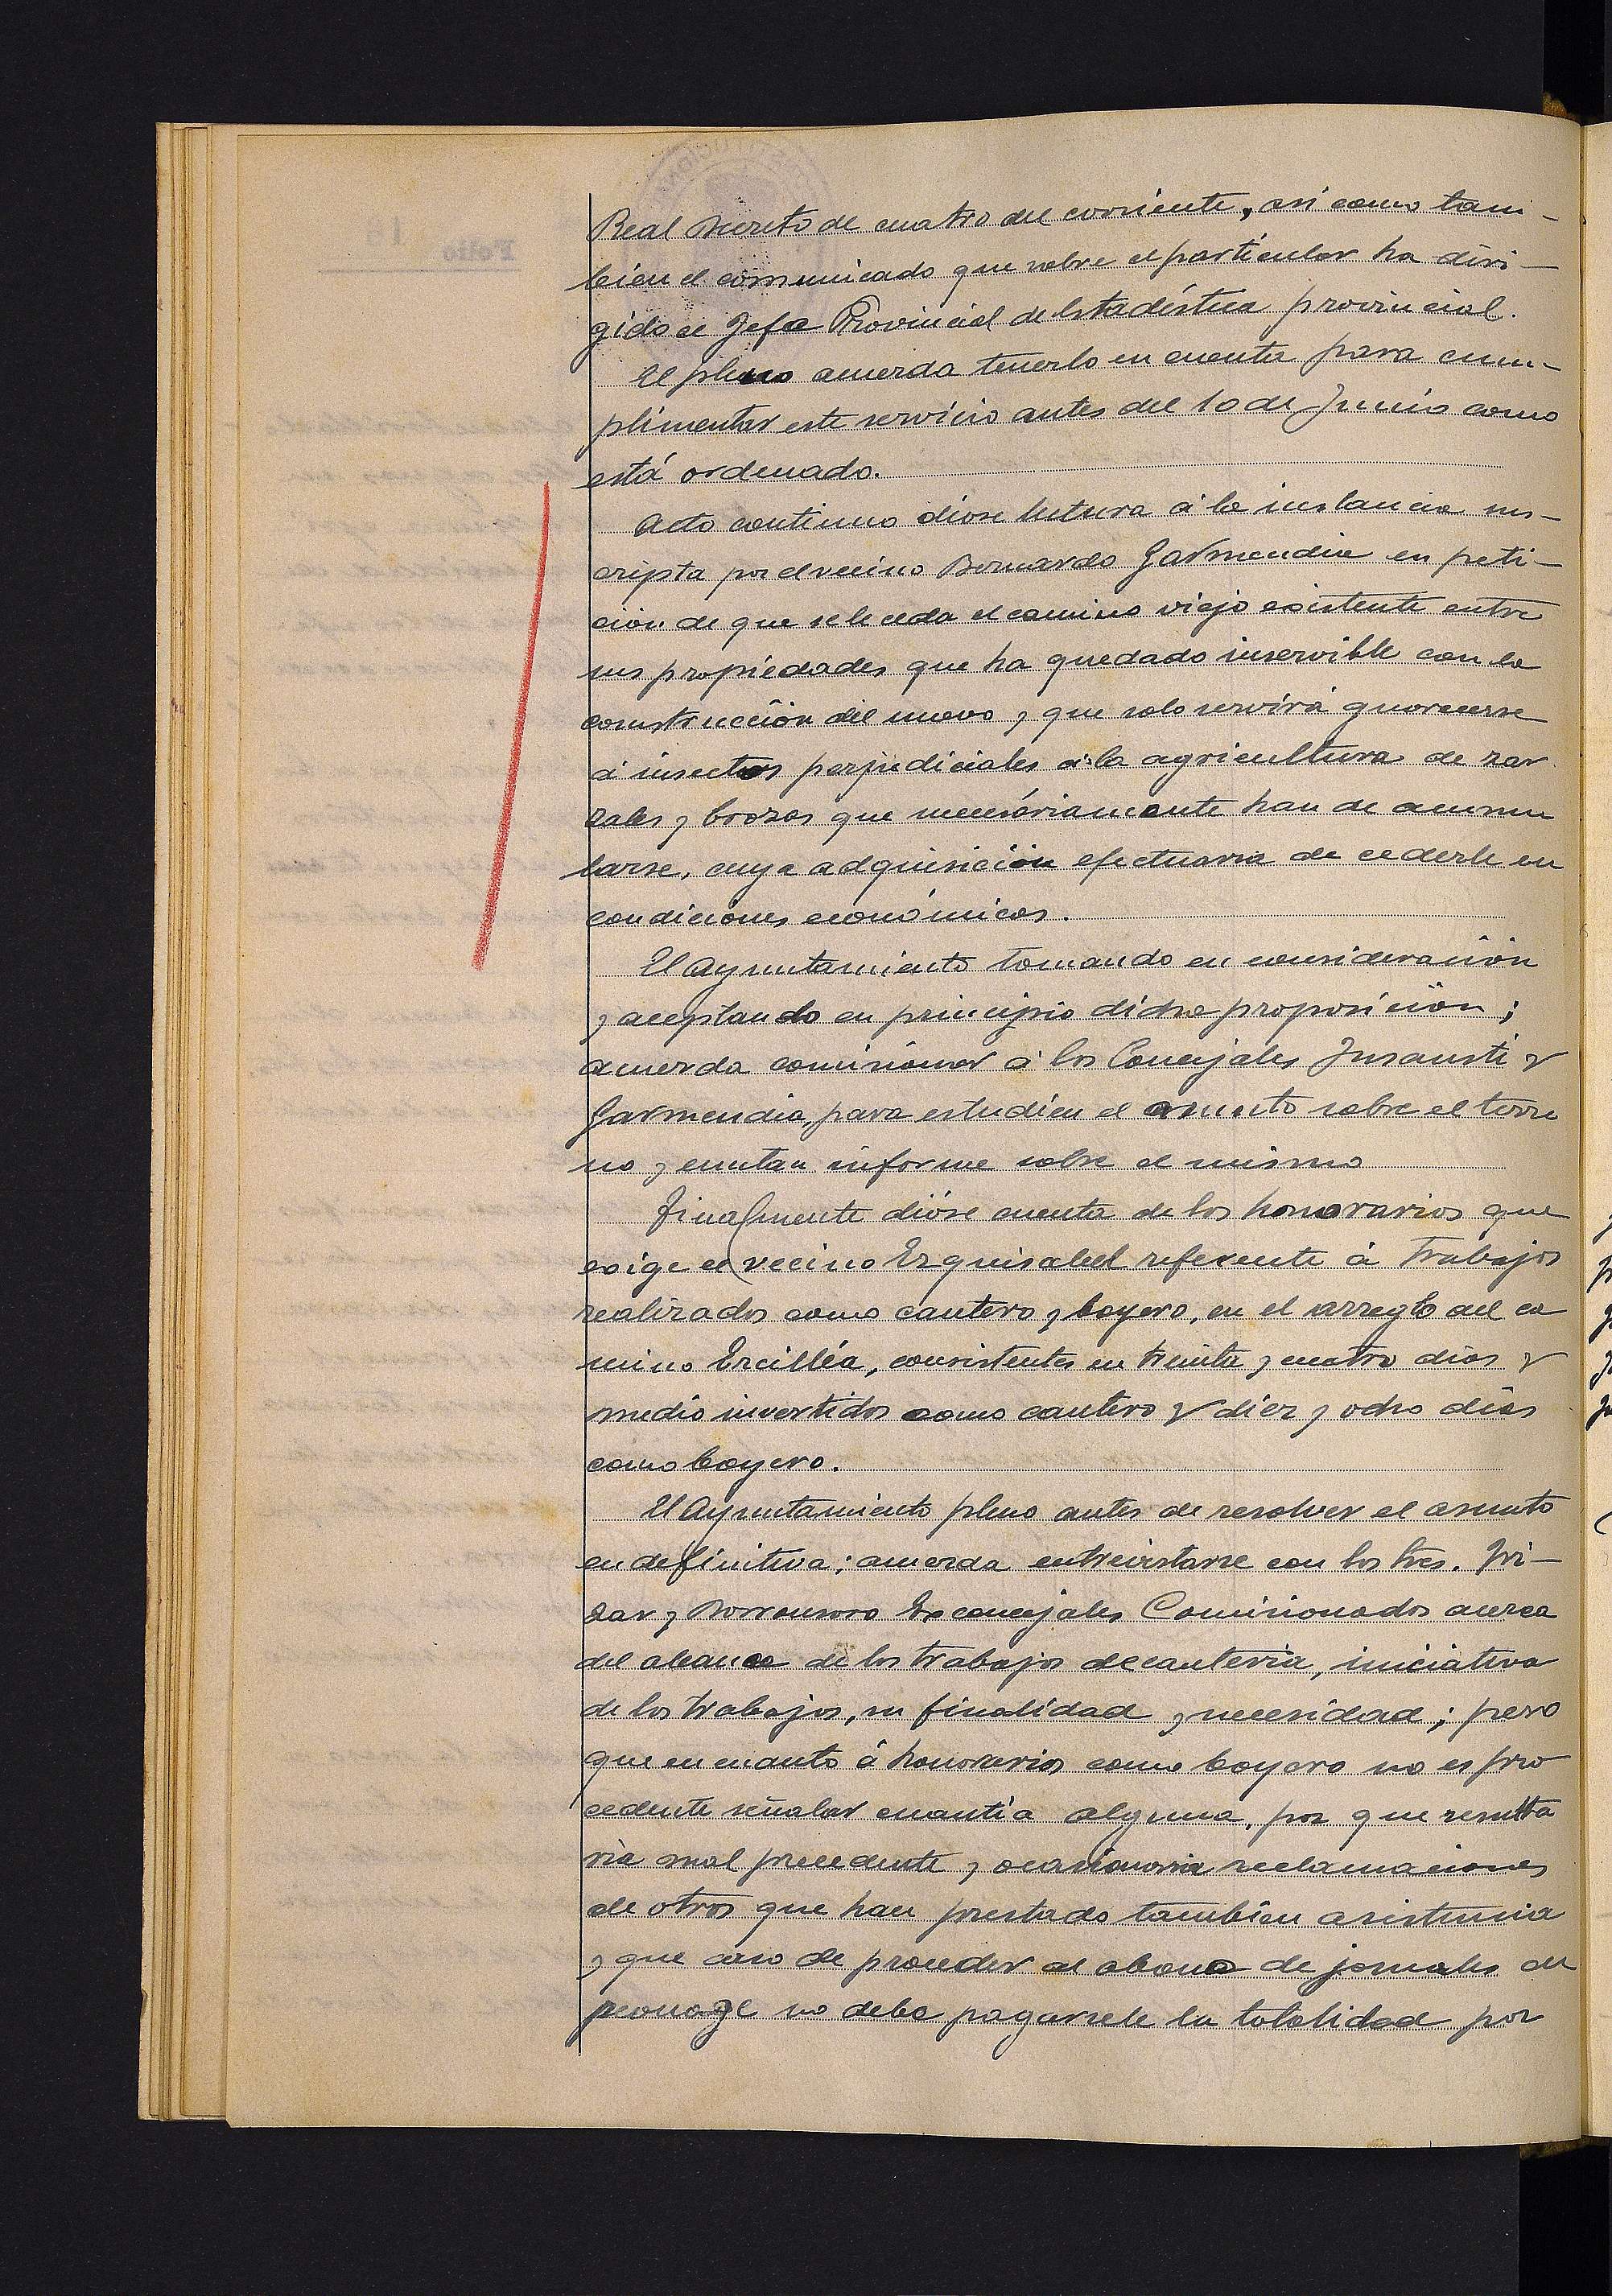 Real Decreto de cuatro del corriente, asi como tam-
bien el comunicado que sobre el particular ha diri-
gido el Jefe Provincial de Estadística provincial.
El pleno acuerda tenerlo en cuenta para cum-
plimentar este servicio antes del 10 de Junio como
está ordenado.
Acto continuo dióse lectura á la instancia sus-
cripta por el vecino Bernardo Garmendia en peti-
ción de que se le ceda el camino viejo existente entre
sus propiedades que ha quedado inservible con la
construcción del nuevo y que solo servirá guarecerse
á insectos perjudiciales á la agricultura de zar
zales y brozas que necesáriamente han de acumu
larse, cuya adquisición efectuaria de cederle en
condiciones económicas.
El Ayuntamiento tomando en consideración
y aceptando en principio dicha proposición;
acuerda comisionar á los Concejales Insausti y
Garmendia, para estudien el asunto sobre el terre
no y emitan informe sobre el mismo
Finalmente dióse cuenta de los honorarios que
exige el vecino Ezquisabel referente á trabajos
realizados como cantero y boyero, en el arreglo del ca
mino Ercilléa, consistentes en treinta y cuatro dias y
medio invertidos como cantero y diez y ocho dias
como boyero.
El Ayuntamiento pleno antes de resolver el asunto
en definitiva; acuerda entrevistarse con los Sres. Iri-
zar y Borronsoro Exconcejales Comisionados acerca
del alcance de los trabajos de canteria, iniciativa
de los trabajos, su finalidad y necesidad; pero
que en cuanto á honorarios como boyero no es pro
cedente señalar cuantia alguna, por que resulta
ria mal precedente y ocasionaria reclamaciones
de otros que han prestado tambien asistencia
y que caso de proceder al abono de jornales de
peonage no debe pagarsele la totalidad por